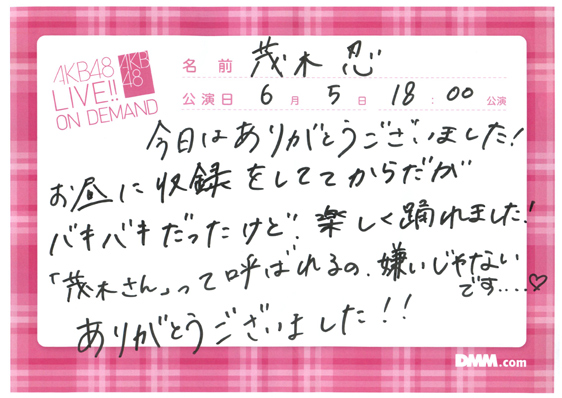 AKB48
LIVE!!
ON DEMAND
AKB
48
名前 茂木 忍
公演日 6月 5日 18:00 公演
今日はありがとうございました!
お昼に収録をしててからだが
バキバキだったけど、楽しく踊れました!
「茂木さん」って呼ばれるの、嫌いじゃない
です....♡
ありがとうございました!!
DMM.com